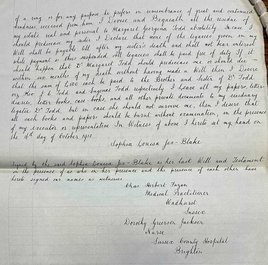 of a ring, or for any purpose she prefers in remembrance of great and continued
kindness received from her. I Devise and Bequeath all the residue of
my whole real and personal to Margaret Georgina Todd absolutely. In case she
should predecease me under I Declare that none of the legacies given in my
Will shall be payable till after my sister's death and shall not bear interest
while payment is thus suspended. All legacies shall be paid free of duty. If it
should happen that Dr Margaret Todd should predecease me or should die
within six months of my death without having made a Will then I devise
that the sum of £ 500 each be paid to the Brother and Sister of Dr Todd,
viz. Mr J. L. Todd and Eugénie Todd respectively. I leave all my papers, letters,
diaries, letter books, case books, and all other private documents to my residuary
legatee Dr Todd, but in case she should not survive me, then I desire that
all such books and papers should be burnt without examination, in the presence
of my Executor or representative. In Witness of above I hereto set my hand on
the 4th day of October 1911.
Sophia Louisa Jex-Blake
Signed by the said Sophia Louisa Jex-Blake as her last Will and Testament
in the presence of us who in her presence and the presence of each other have
hereto signed our names as witnesses
Chas Herbert Fazan
Medical Practitioner
Wadhurst
Sussex
Dorothy Grierson Jackson
Nurse
Sussex County Hospital
Brighton